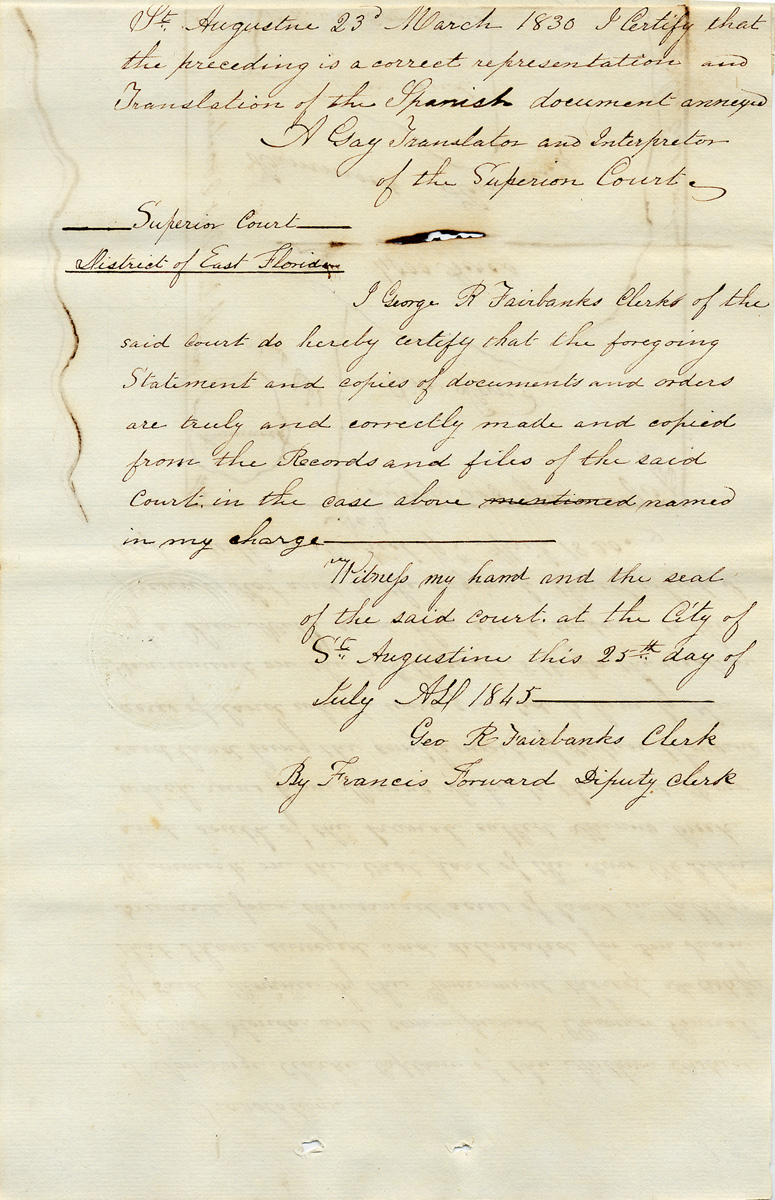 St. Augustne 23d March 1830 I Certify that
the preceding is a correct representation and
Translation of the Spanish document annexed
A Gay Translator and Interpretor
of the Superior Court.
Superior Court
District of East Florida
I George R Fairbanks Clerk of the
said court do hereby certify that the foregoing
Statement and copies of documents and orders
are truly and correctly made and copied
from the Records and files of the said
Court. in the case above mentioned named
in my charge
Witness my hand and the seal
of the said court. at the City of
St. Augustine this 25th day of
July AD 1845
Geo R Fairbanks Clerk
By Francis Forward Diputy clerk